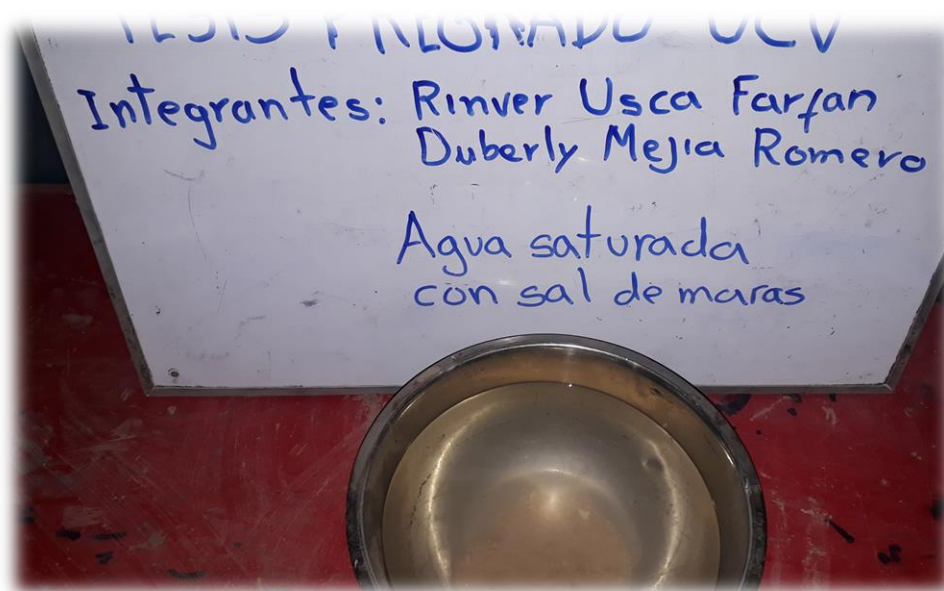 TESIS PREGRADO UCV
Integrantes: Rinver Usca Farfan
Duberly Mejia Romero
Agua saturada
con sal de maras